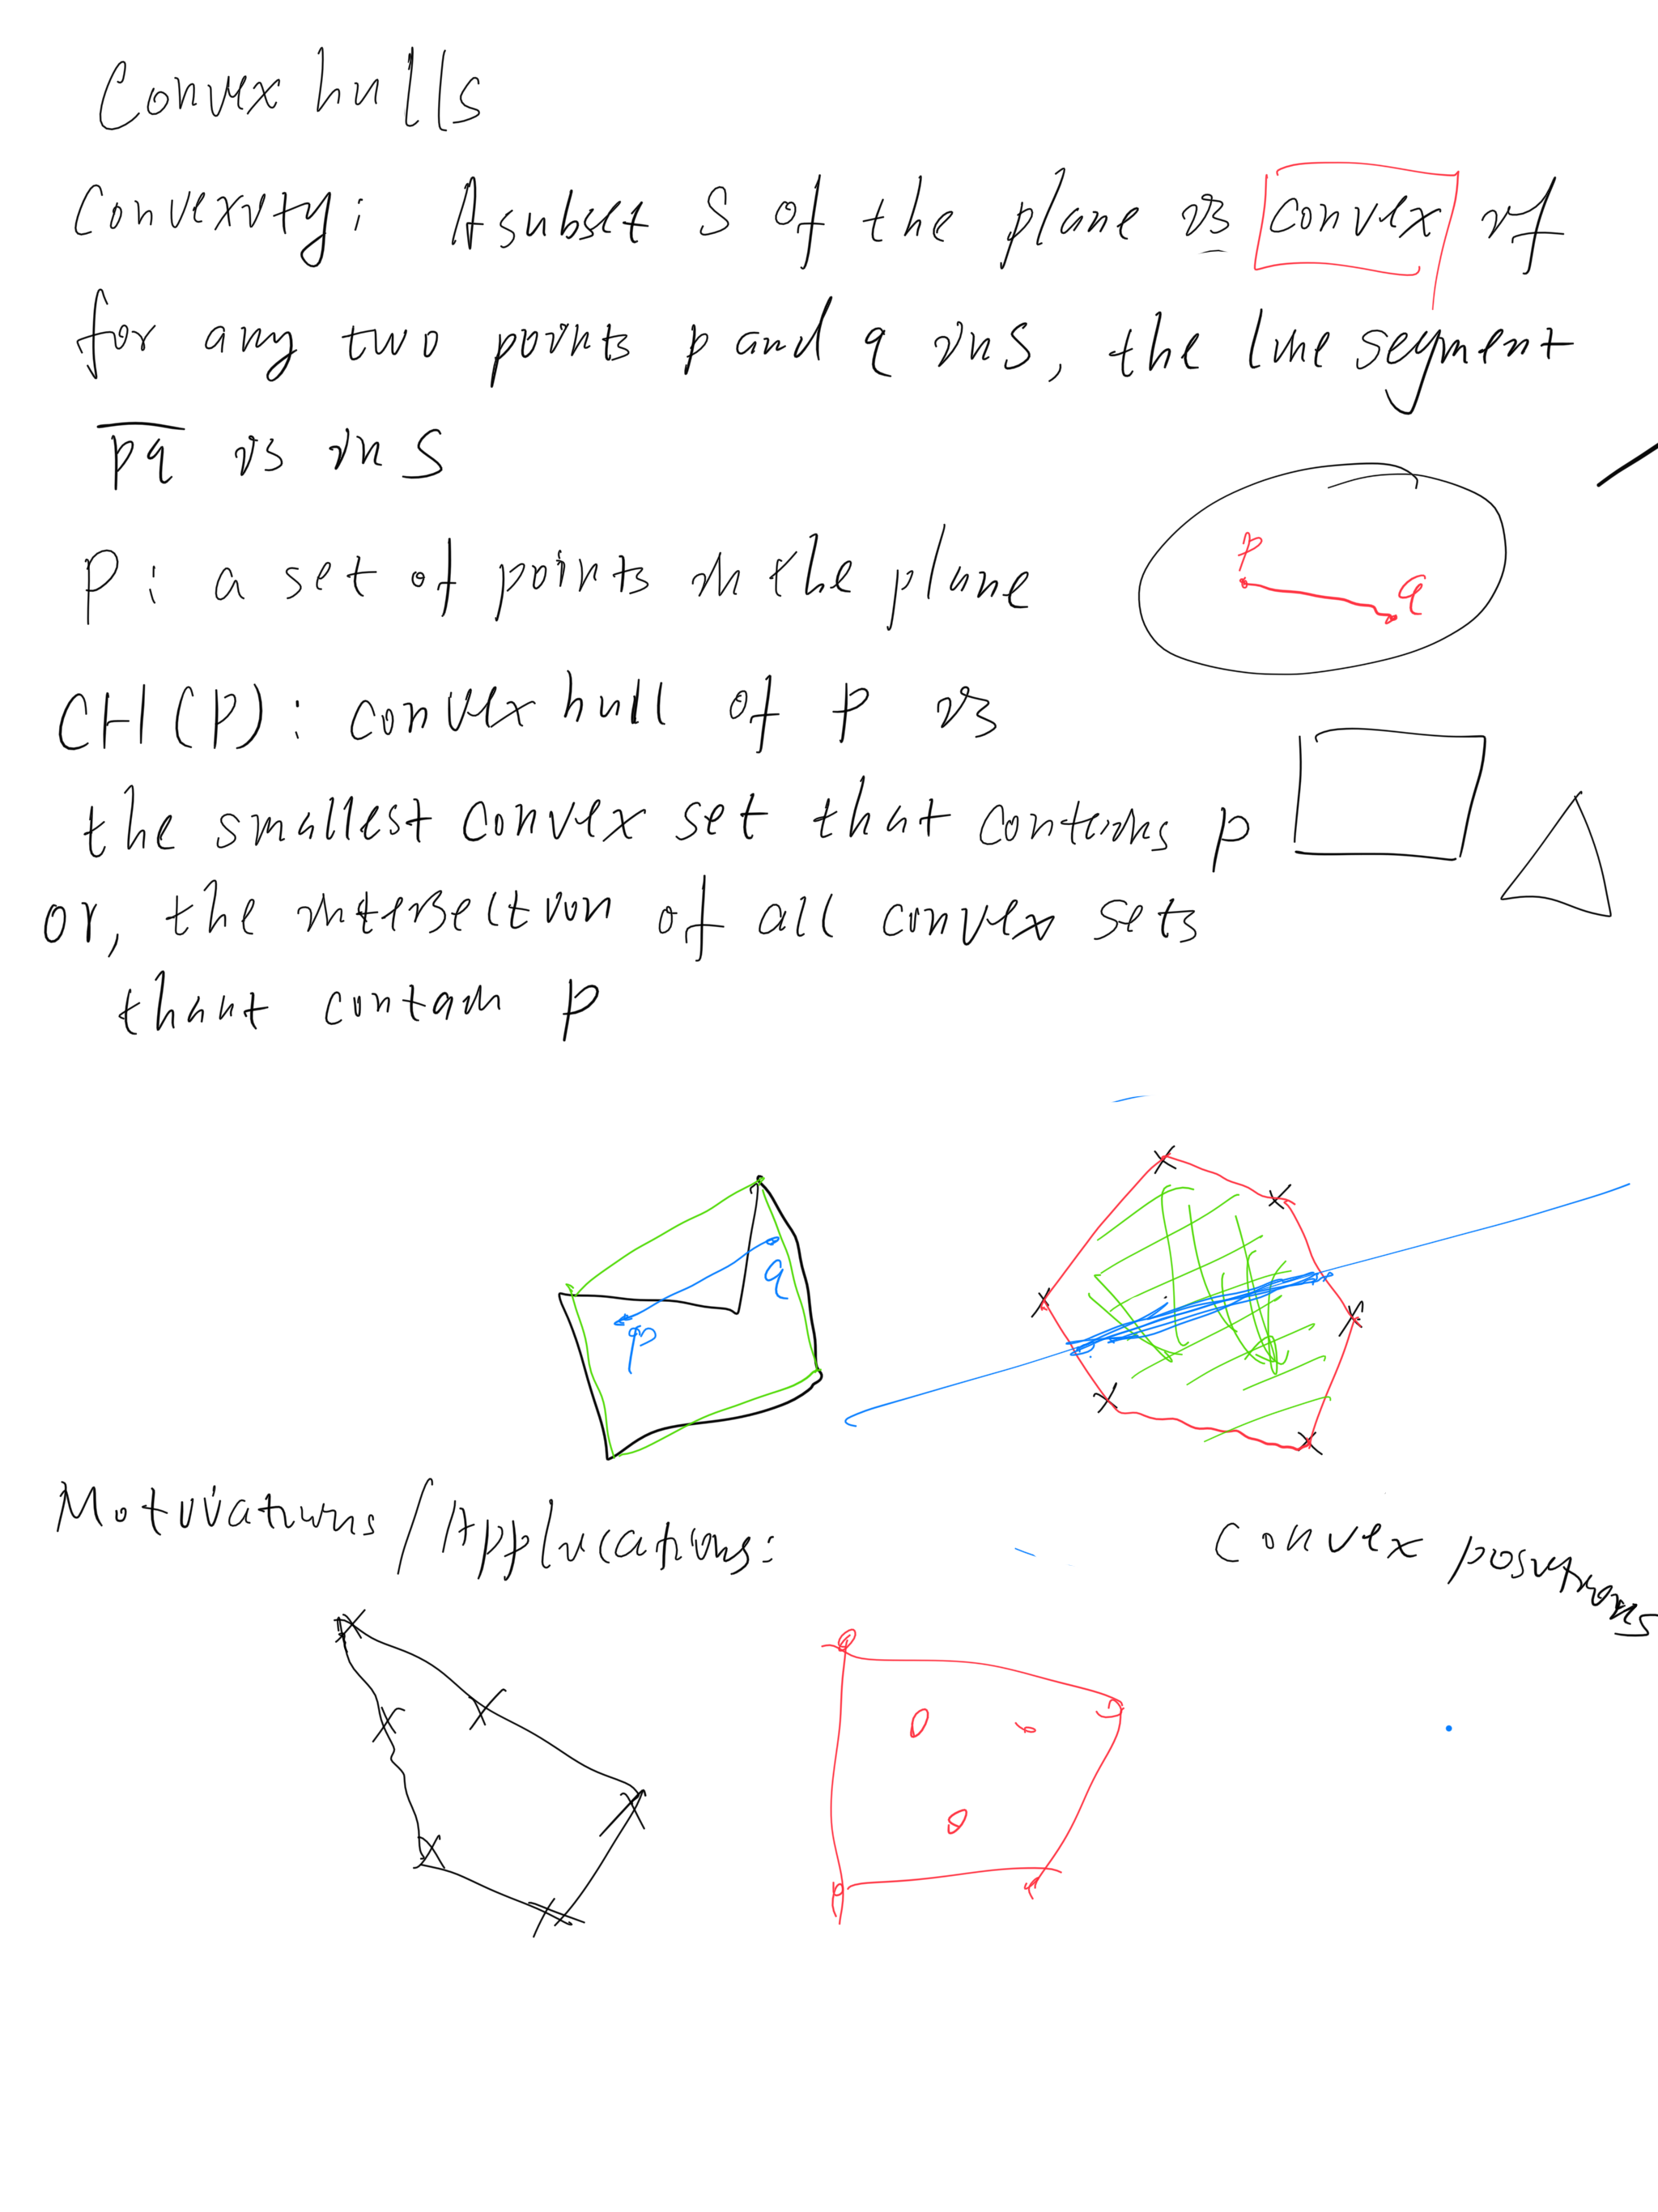 Convex hulls
Convexity: A subset S of the plane is convex if
for any two points p and q in S, the line segment
p̅q̅ is in S
P: a set of points in the plane
p
q
CH(P): convex hull of P is
the smallest convex set that contains P
or, the intersection of all convex sets
thant contain P
q
p
Motivations/Applications:
convex positions